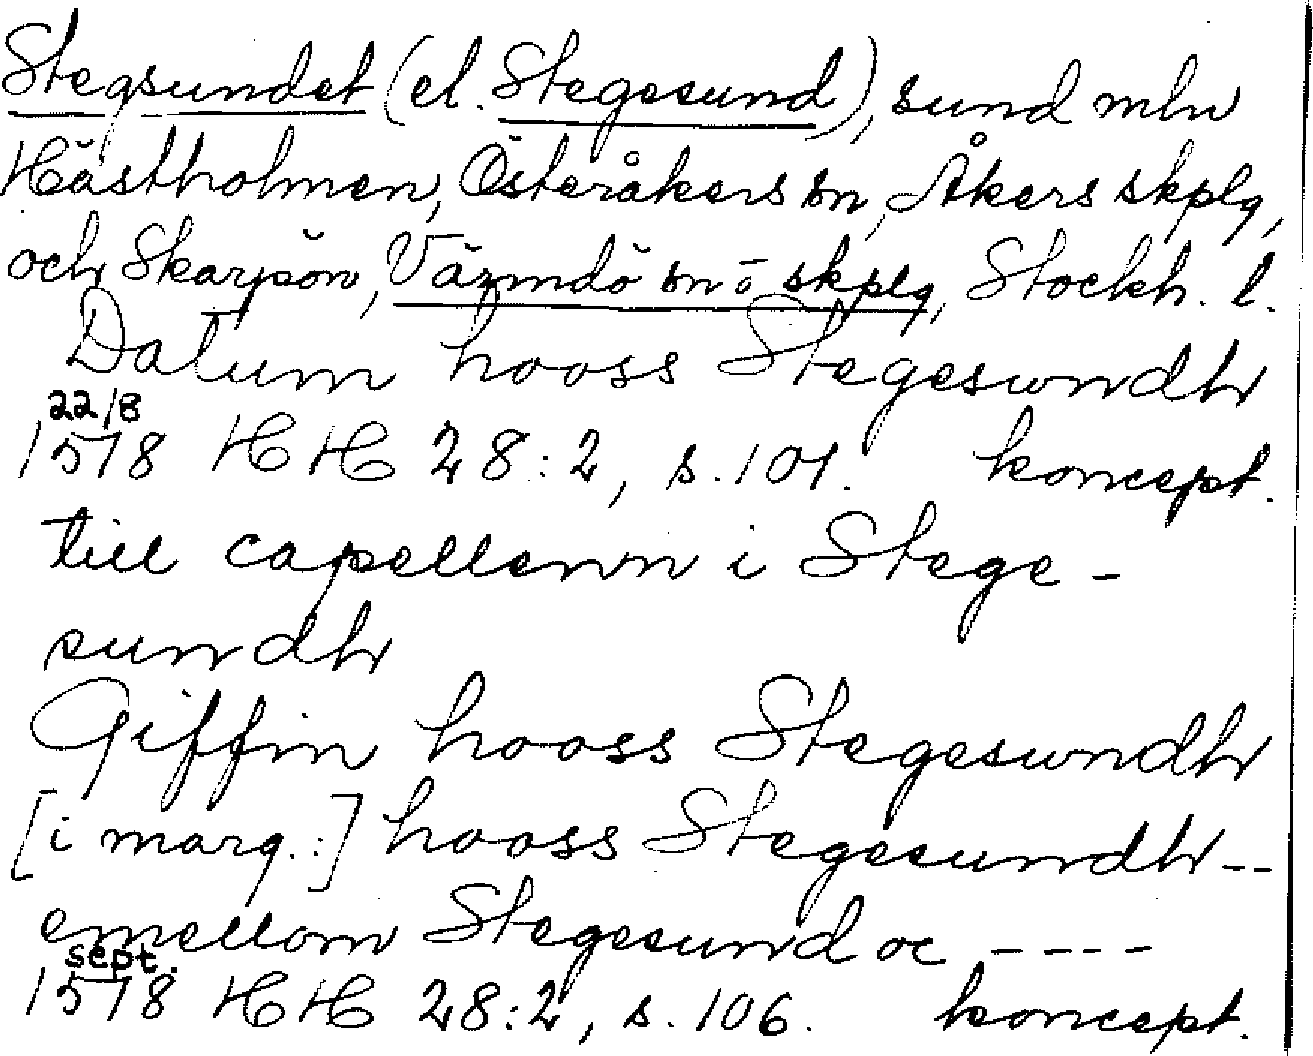 Stegsundet (el. Stegesund), sund mln
Hästholmen, Österåkers sn, Åkers skplg,
och Skarpön, Värmdö sn ō skplg, Stockh. l.
Datum hooss Stegesundh
22/8
1578 HH 28:2, s. 101. koncept.
till capellenn i Stege-
sundh
Giffin hooss Stegesundh
[i marg.:] hooss Stegesundh--
emellom Stegesund oc ----
sept.
1578 HH 28:2, s. 106. koncept.